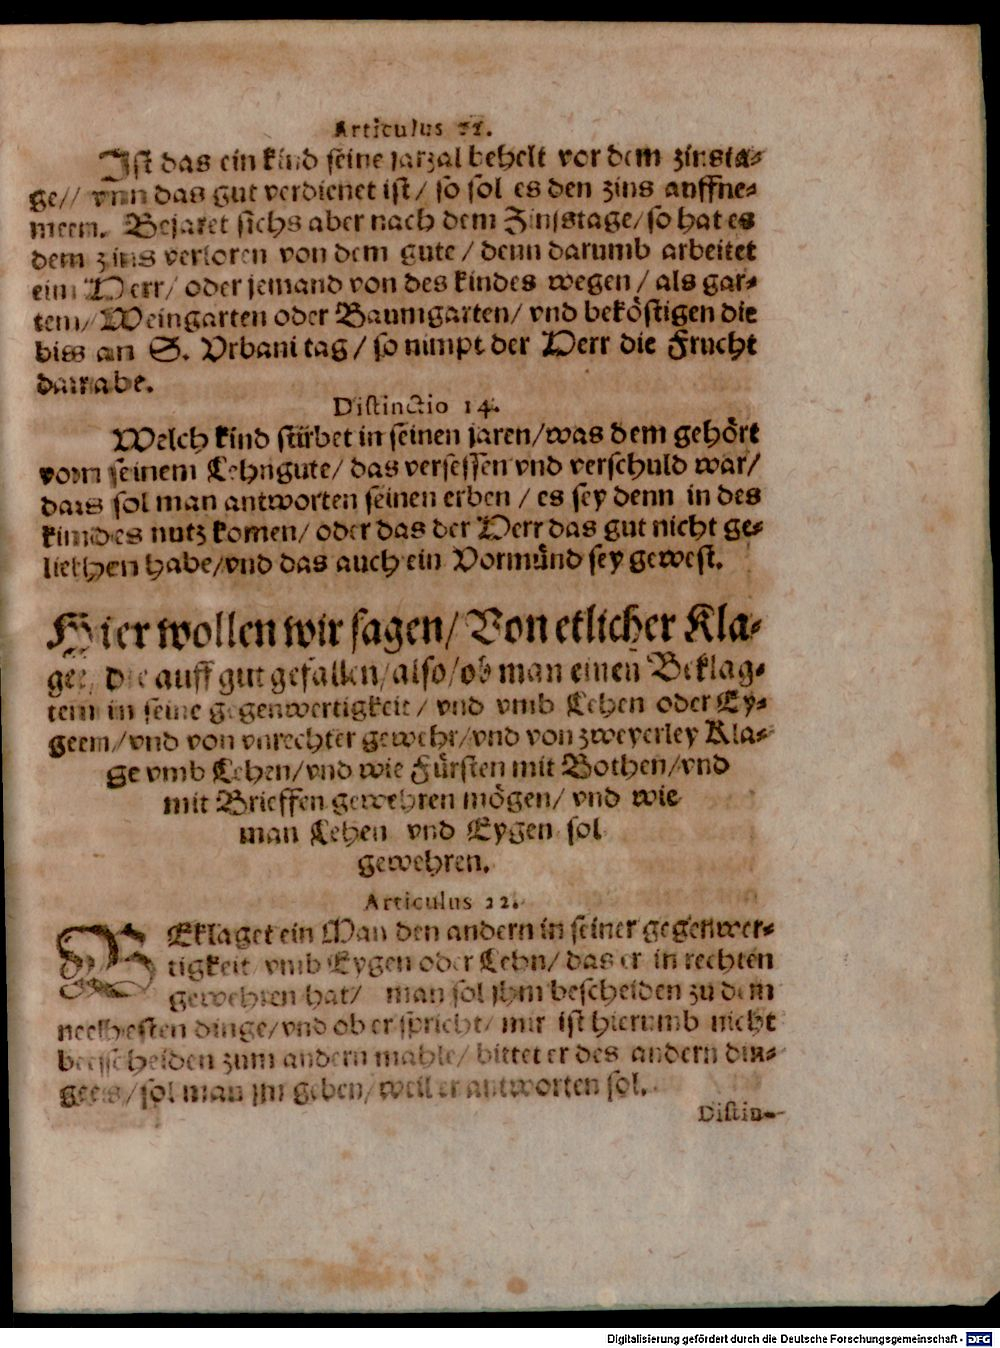 Articulus 11.
Ist das ein kind seine jarzal behelt vor dem zinsta-
ge// vnn das gut verdienet ist/ so sol es den zins auffne-
men. Bejaret sichs aber nach dem Zinstage/ so hat es
den zins verloren von dem gute/ denn darumb arbeitet
ein Herr/ oder jemand von des kindes wegen/ als gar-
ten/ Weingarten oder Baumgarten/ vnd beköstigen die
biss an S. Vrbani tag/ so nimpt der Herr die Frucht
darabe.
Distinctio 14.
Welch kind stirbet in seinen jaren/ was dem gehört
von seinem Lehngute/ das versessen vnd verschuld war/
das sol man antworten seinen erben/ es sey denn in des
kindes nutz komen/ oder das der Herr das gut nicht ge-
liehen habe/ vnd das auch ein Vormünd sey gewest.
Hier wollen wir sagen/ Von etlicher Kla-
ge/ die auff gut gefallen/ also/ ob man einen Beklag-
ten in seine gegenwertigkeit/ vnd vmb Lehen oder Ey-
gen/ vnd von vnrechter gewehr/ vnd von zweyerley Kla-
ge vmb Lehen/ vnd wie Fürsten mit Bothen/ vnd
mit Brieffen gewehren mögen/ vnd wie
man Lehen vnd Eygen sol
gewehren.
Articulus 12.
BEklaget ein Man den andern in seiner gegenwer-
tigkeit vmb Eygen oder Lehn/ das er in rechten
gewehren hat/ man sol ihm bescheiden zu dem
nechesten dinge/ vnd ob er spricht/ mir ist hierumb nicht
bescheiden zum andern mahle/ bittet er des andern din-
ges/ sol man jm geben/ weil er antworten sol.
Distin-
Digitalisierung gefördert durch die Deutsche Forschungsgemeinschaft - DFG